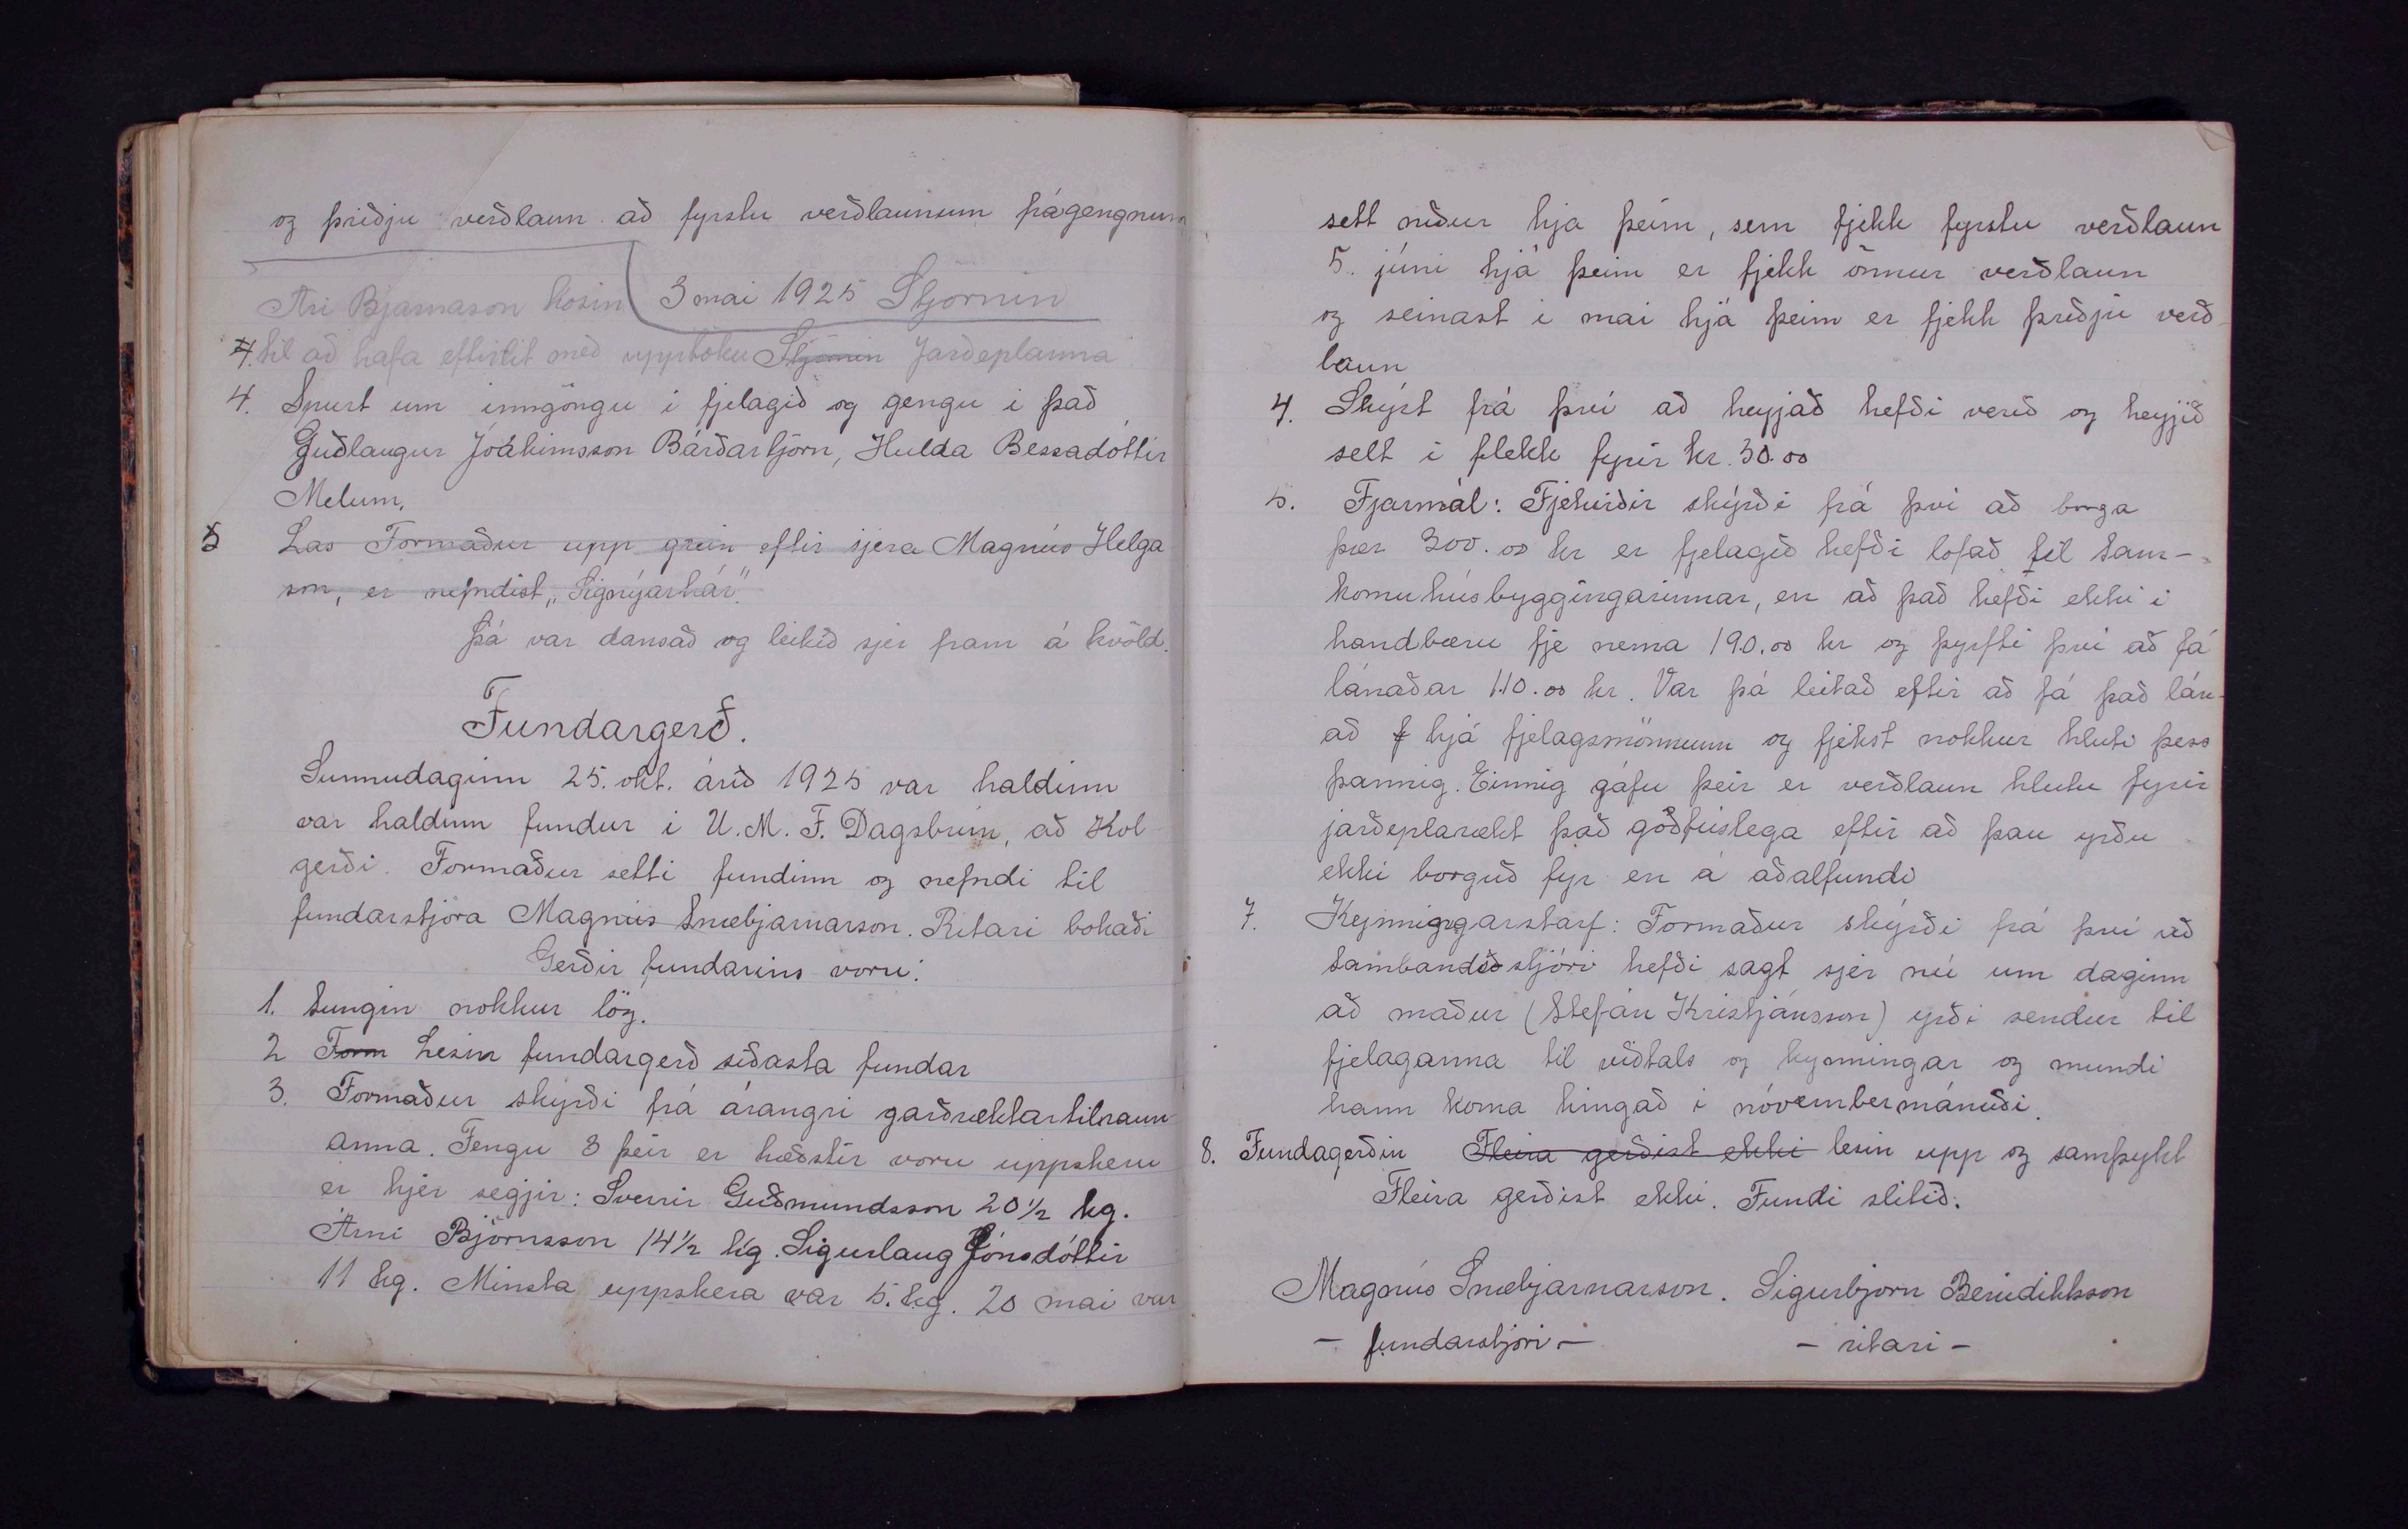 og þriðju verðlaun að fyrstu verðlaunum frágengnum
3 mai 1925 Stjórnin
Ari Bjarnason kosin
4. til að hafa eftirlit með upptöku Stjórnin Jarðeplanna
4. Spurt um inngöngu i fjelagið og gengu i það
Guðlaugur Jóakimsson Bárðartjörn, Hulda Bessadóttir
Melum.
5 Las Formaður upp grein eftir sjera Magnús Helga
son, er nefndist „Signýarhár".
Þá var dansað og leikið sjer fram á kvöld.
Fundargerð.
Sunnudaginn 25. okt. árið 1925 var haldinn
var haldinn fundur i U. M. F. Dagsbrún, að Kol
gerði. Formaður setti fundinn og nefndi til
fundarstjóra Magnús Snæbjarnarson. Ritari bokaði
Gerðir fundarins voru:
1. Sungin nokkur lög.
2 Form Lesin fundargerð síðasta fundar
3. Formaður skyrði frá árangri garðræktartilraun
anna. Fengu 3 þeir er hæðstir voru uppskeru
er hjer segjir: Sverrir Guðmundsson 20 1/2 kg.
Árni Björnsson 14 1/2 kg. Sigurlaug Jónsdóttir
11 kg. Minsta uppskera var 5. kg. 20 mai var
sett niður hja þeim, sem fjekk fyrstu verðlaun
5. júni hjá þeim er fjekk önnur verðlaun
og seinast i mai hjá þeim er fjekk þriðju verð
laun
4. Skýrt frá því að heyjað hefði verið og heyjið
selt i flekk fyrir kr. 30.00
5. Fjarmál: Fjehirðir skýrði frá því að borga
þær 300.00 kr er fjelagið hefði lofað til Sam-
komuhúsbyggingarinnar, en að það hefði ekki i
handbæru fje nema 190.00 kr og þyrfti því að fá
lánaðar 110.00 kr. Var þá leitað eftir að fá það lán-
að f hjá fjelagsmönnum og fjekst nokkur hluti þess
þannig. Einnig gáfu þeir er verðlaun hlutu fyrir
jarðeplarækt það góðfúslega eftir að þau yrðu
ekki borguð fyr en á aðalfundi
7. Kynningarstarf: Formaður skýrði frá því að
Sambandsstjóri hefði sagt sjer nú um daginn
að maður (Stefán Kristjánsson) yrði sendur til
fjelaganna til viðtals og kynningar og mundi
hann koma hingað i nóvembermánuði.
8. Fundagerðin Fleira gerðist ekki lesin upp og samþykt
Fleira gerðist ekki. Fundi slitið.
Magnús Snæbjarnarson. Sigurbjorn Benidiktsson
- fundarstjóri - - ritari -